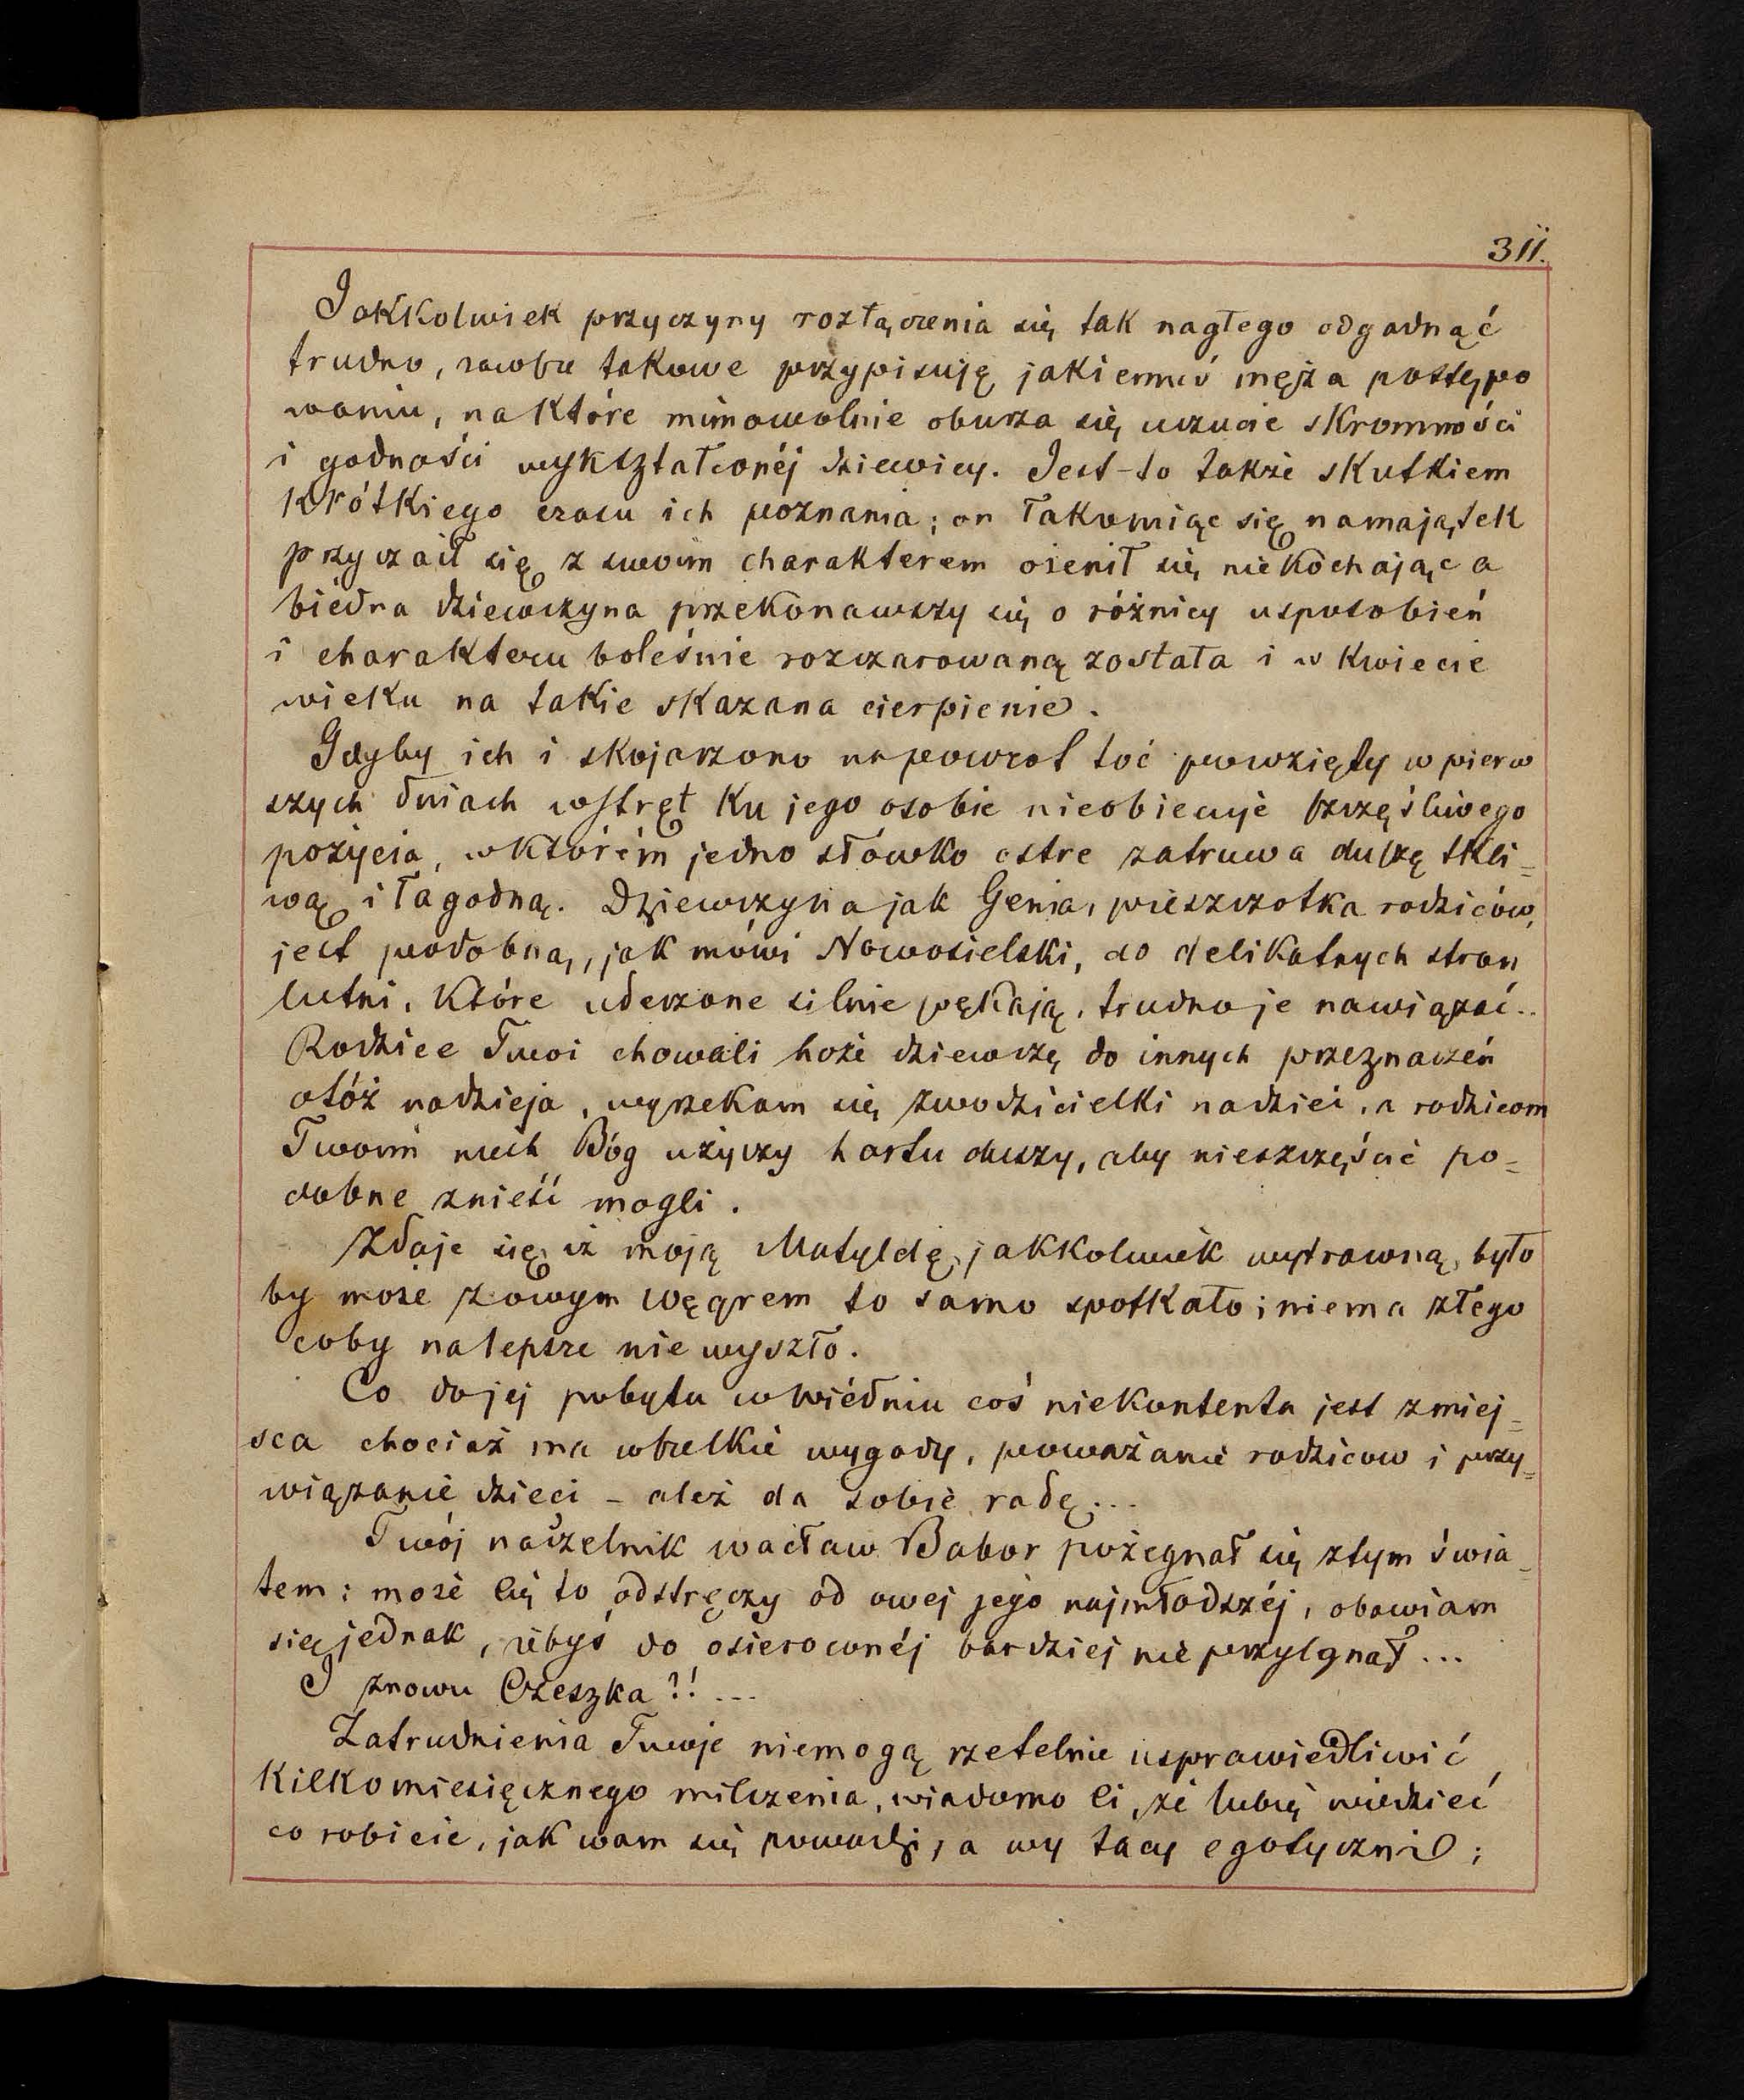 311.
Jakkolwiek przyczyny rozłączenia się tak nagłego odgadnąć
trudno, zawsze takowe przypisuję jakiemuś męża postępo
waniu, na które mimowolnie oburza się uczucie skromności
i godności wykształconéj dziewicy. Jest-to także skutkiem
krótkiego czasu ich poznania; on łakomiąc się na majątek
przyczaił się z swoim charakterem ożenił się niekochając a
biedna dziewczyna przekonawszy się o różnicy usposobień
i charakteru boleśnie rozczarowaną została i w kwiecie
wieku na takie skazana cierpienie.
Gdyby ich i skojarzono napowrot toć powzięty w pierw
szych dniach wstręt ku jego osobie nieobiecuje szczęśliwego
pożycia, wktórém jedno słówko ostre zatruwa duszę tkli=
wą i łagodną. Dziewczyna jak Genia, pieszczotka rodziców,
jest podobną, jak mówi Nowosielski, do delikatnych stron
lutni, które uderzone silnie pękają, trudno je nawiązać..
Rodzice Twoi chowali hoże dziewczę do innych przeznaczeń
otóż nadzieja, wyrzekam się zwodzicielki nadziei, a rodzicom
Twoim niech Bóg użyczy hartu duszy, aby nieszczęście po=
dobne znieść mogli.
Zdaje się iż moją Matyldę, jakkolwiek wytrawną, było
by może z owym węgrem to samo spotkało; niema złego
coby nalepsze nie wyszło.
Co do jej pobytu w Wiédniu coś niekontenta jest z miej=
sca chociaż ma wszelkie wygody, poważanie rodzicow i przy=
wiązanie dzieci – ależ da sobie radę...
Twój naczelnik wacław Babor pożegnał się z tym świa_
tem: może Cię to odstręczy od owej jego najmłodszéj, obawiam
się jednak, żebyś do osieroconéj bardziej nie przylgnął...
I znowu Czeszka?!...
Zatrudnienia Twoje niemogą rzetelnie usprawiedliwić
kilkomiesięcznego milczenia, wiadomo Ci, że lubię wiedzieć
co robicie, jak wam się powodzi, a wy tacy egotyczni;